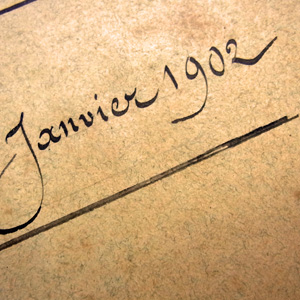 Janvier 1902